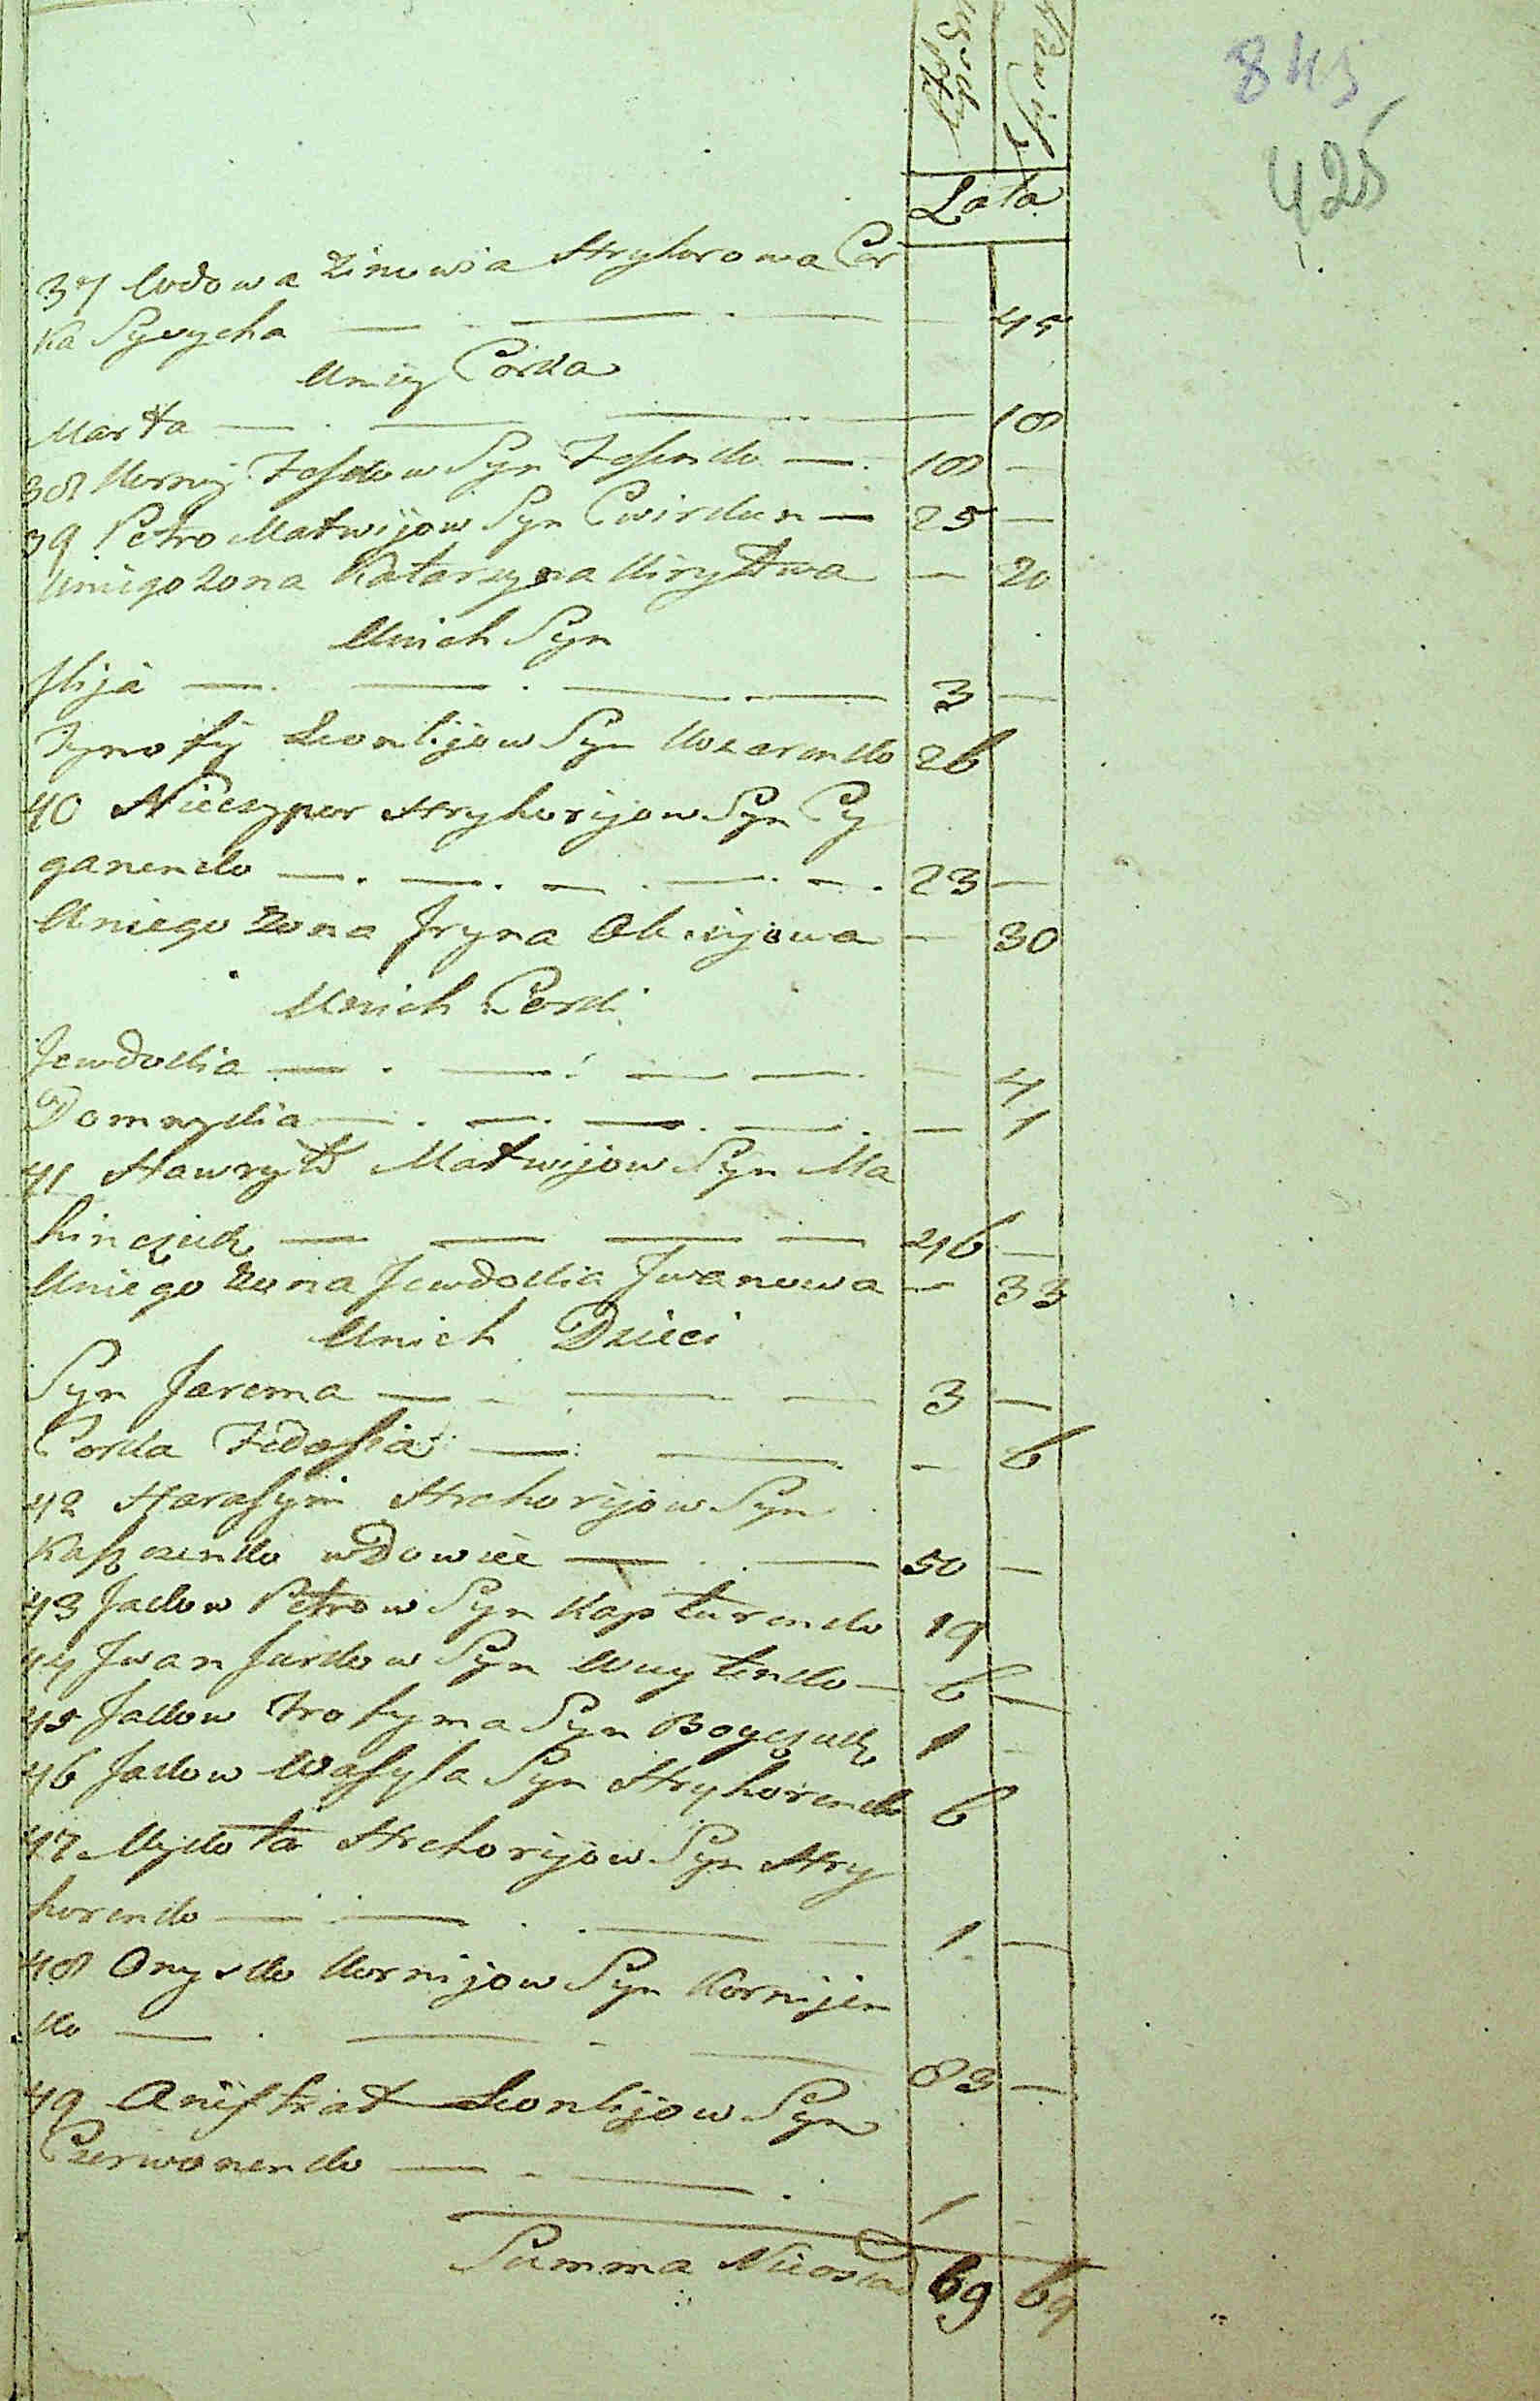 845
425
Lata
37 Wdowa Zinowia Hryhorowa Cor
ka Sywycha — — — 45
Uniey Corka
Marta — — — 18
38 Kornij Feskow Syn Fesenko — 18 —
39 Petro Matwijow Syn Cwirkun — 25 —
Uniego zona Katarzyna Kiryłowa — 20
Unich Syn
Ilija — — — 3 —
Tymofij Leonlijow Syn Kozarenko 26
40 Nieczypor Hryhorijow Syn Cy
ganenko — — — 23 —
Uniego zona Iryna — 30
Unich Corki
Jewdokia — — — 4
Domnykia — — — 1
41 Hawryło Matwijow Syn Ma
hinczuk — — — 46 —
Uniego zona Jewdokia Iwanowa — 33
Unich Dzieci
Syn Jarema — — — 3 —
Corka Fedosia — — — 6
42 Harasym Hrehorijow Syn
wdowiec — — 50 —
43 Jakow Petrow Syn Kapturenko 19
44 Iwan Jurkow Syn — 6 —
45 Jakow Trofyma Syn Boyczuk 1 —
46 Jakow Wasyla Syn Hryhorenko 6
47 Mykoła Hrehorijow Syn Hry
horenko — — — 1 —
48 Onysko Kornijow Syn Kornijen
ko — — — 83 —
49 Leonlijow Syn
Czerwonenko — — — 1 —
Summa 69 69